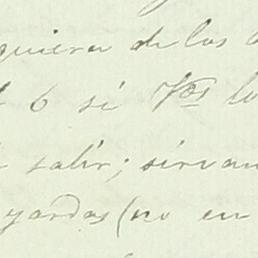 quiera de los
6 si Vos lo
salir; sirvan
yardas (no en